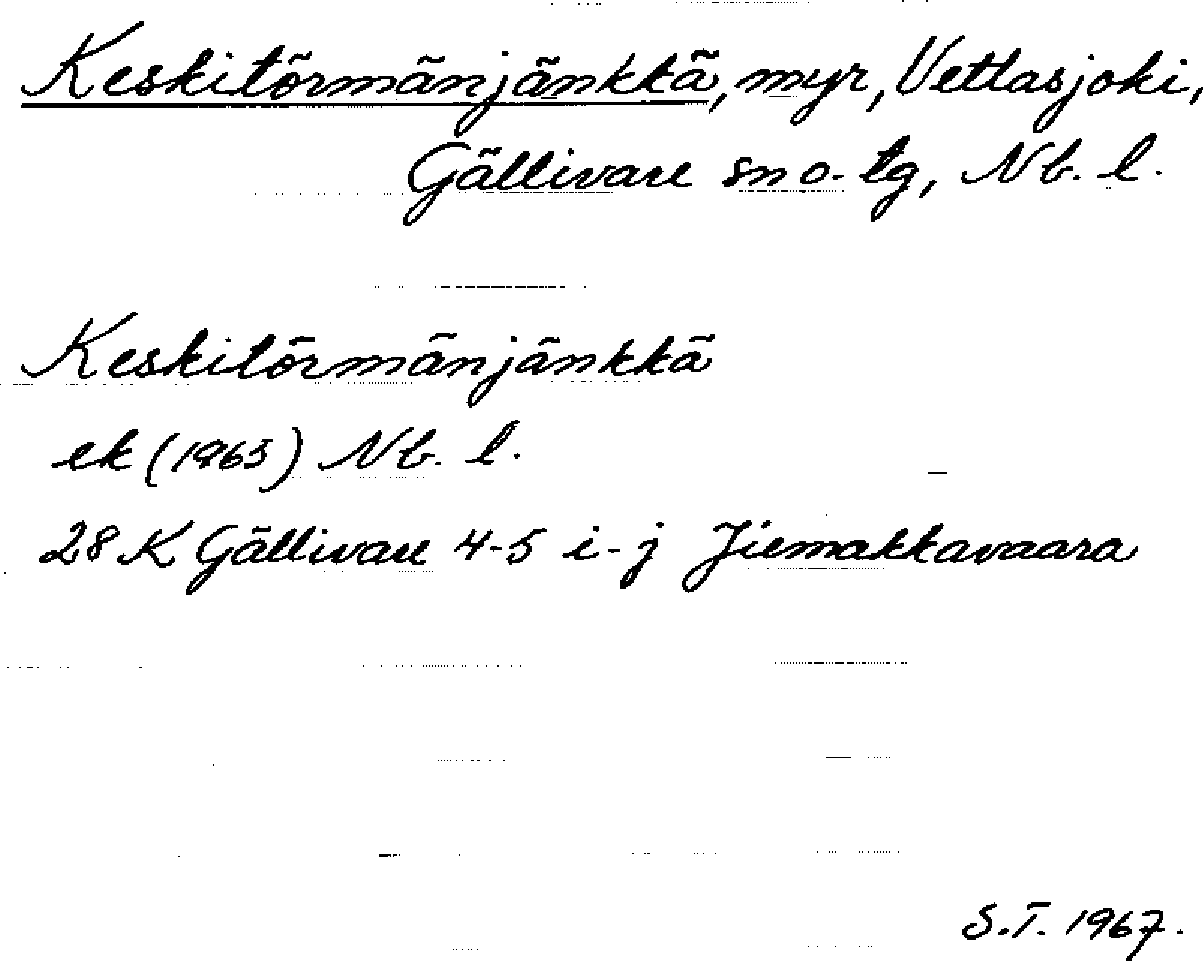 Keskitörmänjänkkä, myr, Vettasjoki,
Gällivare sn o. tg, Nb. l.
Keskitörmänjänkkä
ek (1963) Nb. l.
28 K Gällivare 4-5 i-j Jiemakkavaara
S.T. 1967.